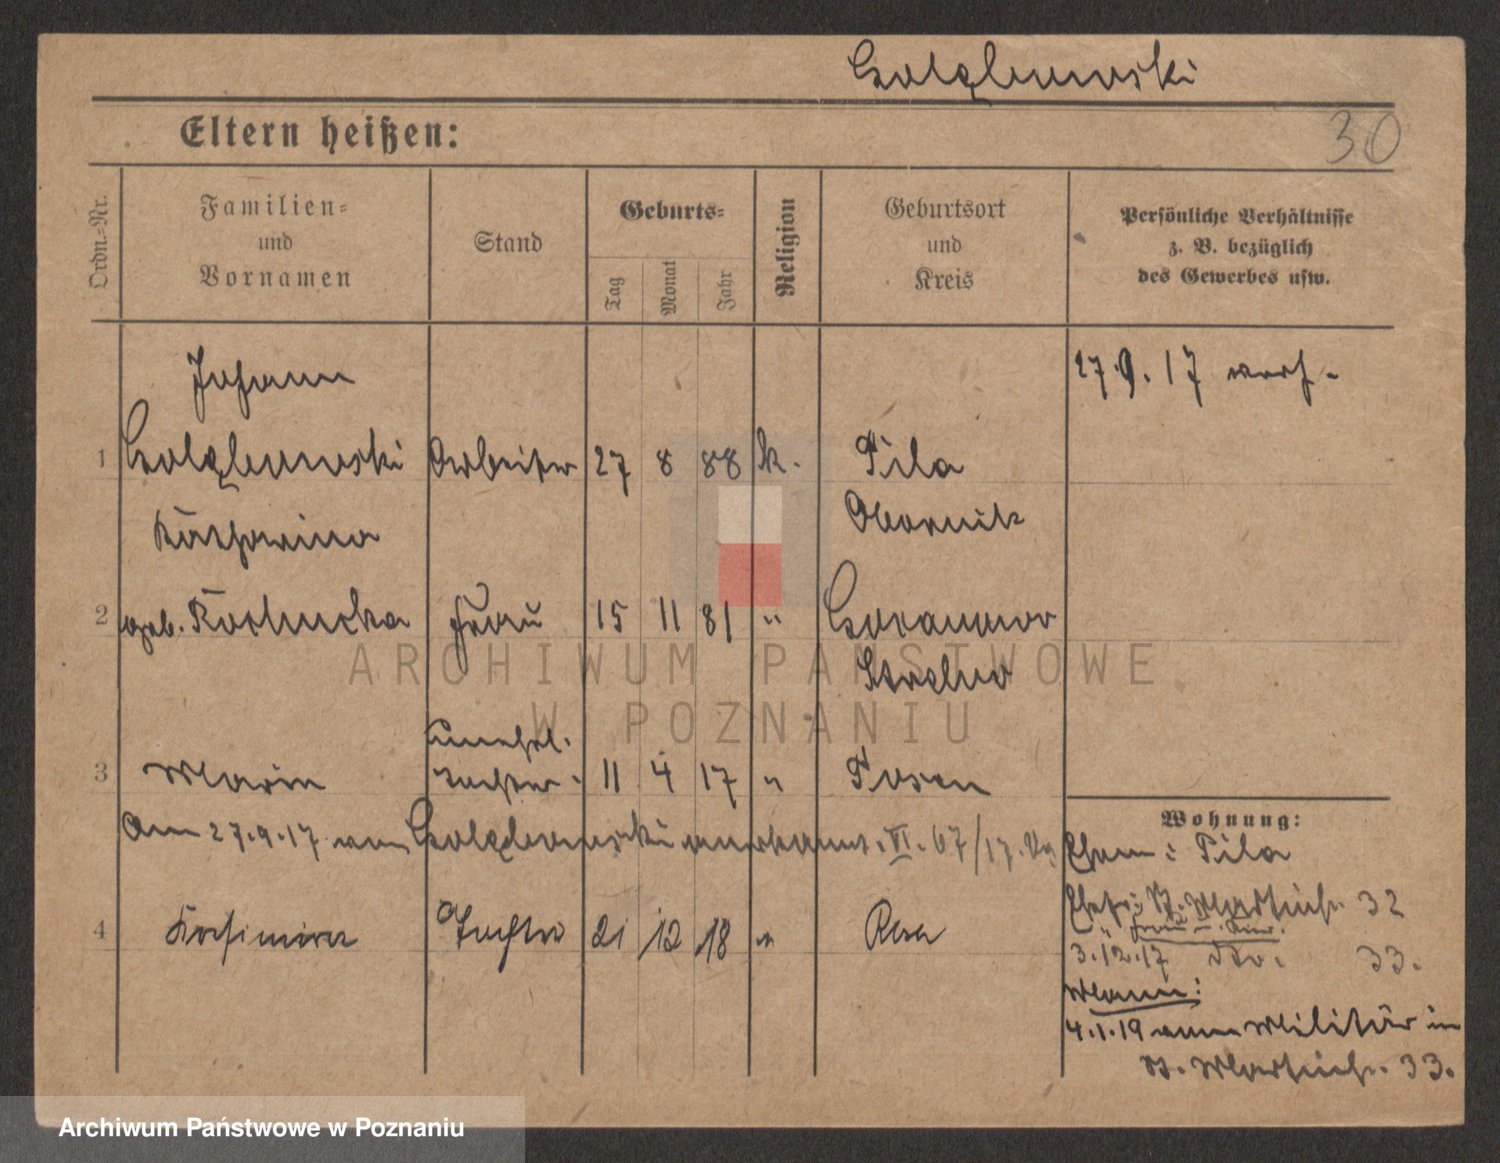 Golqbewski
Eltern heißen:
30
Ordn.=Nr.
Familien=
und
Vornamen
Stand
Geburts=
Tag
Monat
Jahr
Religion
Geburtsort
und
Kreis
Persönliche Verhältnisse
z. B. bezüglich
des Gewerbes usw.
Johann
27.9.17 verh.
1 Arbeiter 27 8 88 k. Pila
Obornik
Katharina
2 geb. Frau 15 11 81 "
Strelno
unehel.
3 Maria Tochter 11 4 17 " Posen
Am 27.9.17 vom anerkannt. VI. 67/17.
Wohnung:
Ehem: Pila
4 Kasimira Tochter 21 12 18 "
St. Martinstr. 32
3.12.17 dto. 33.
Mann:
4.1.19 vom Militär in
St. Martinstr. 33.
ARCHIWUM PAŃSTWOWE
W POZNANIU
Archiwum Państwowe w Poznaniu